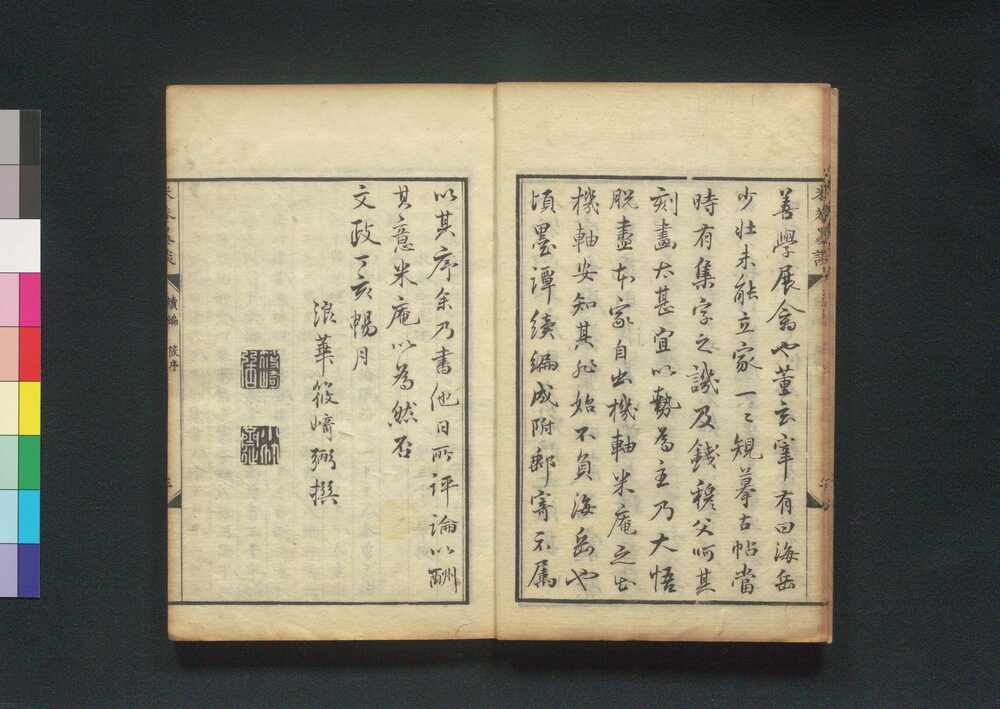 善學展禽也董玄宰有曰海岳
少壯未能立家一〻規摹古帖當
時有集字之譏及錢穆父呵其
刻畫太甚宜以勢為主乃大悟
脱盡本家自出機軸米庵之出
機軸安知其非始不負海岳也
頃墨譚續編成附郵寄示属
以其序余乃書他日所評論以酬
其意米庵以為然否
文政丁亥暢月
浪華筱﨑弼撰
續編
後序